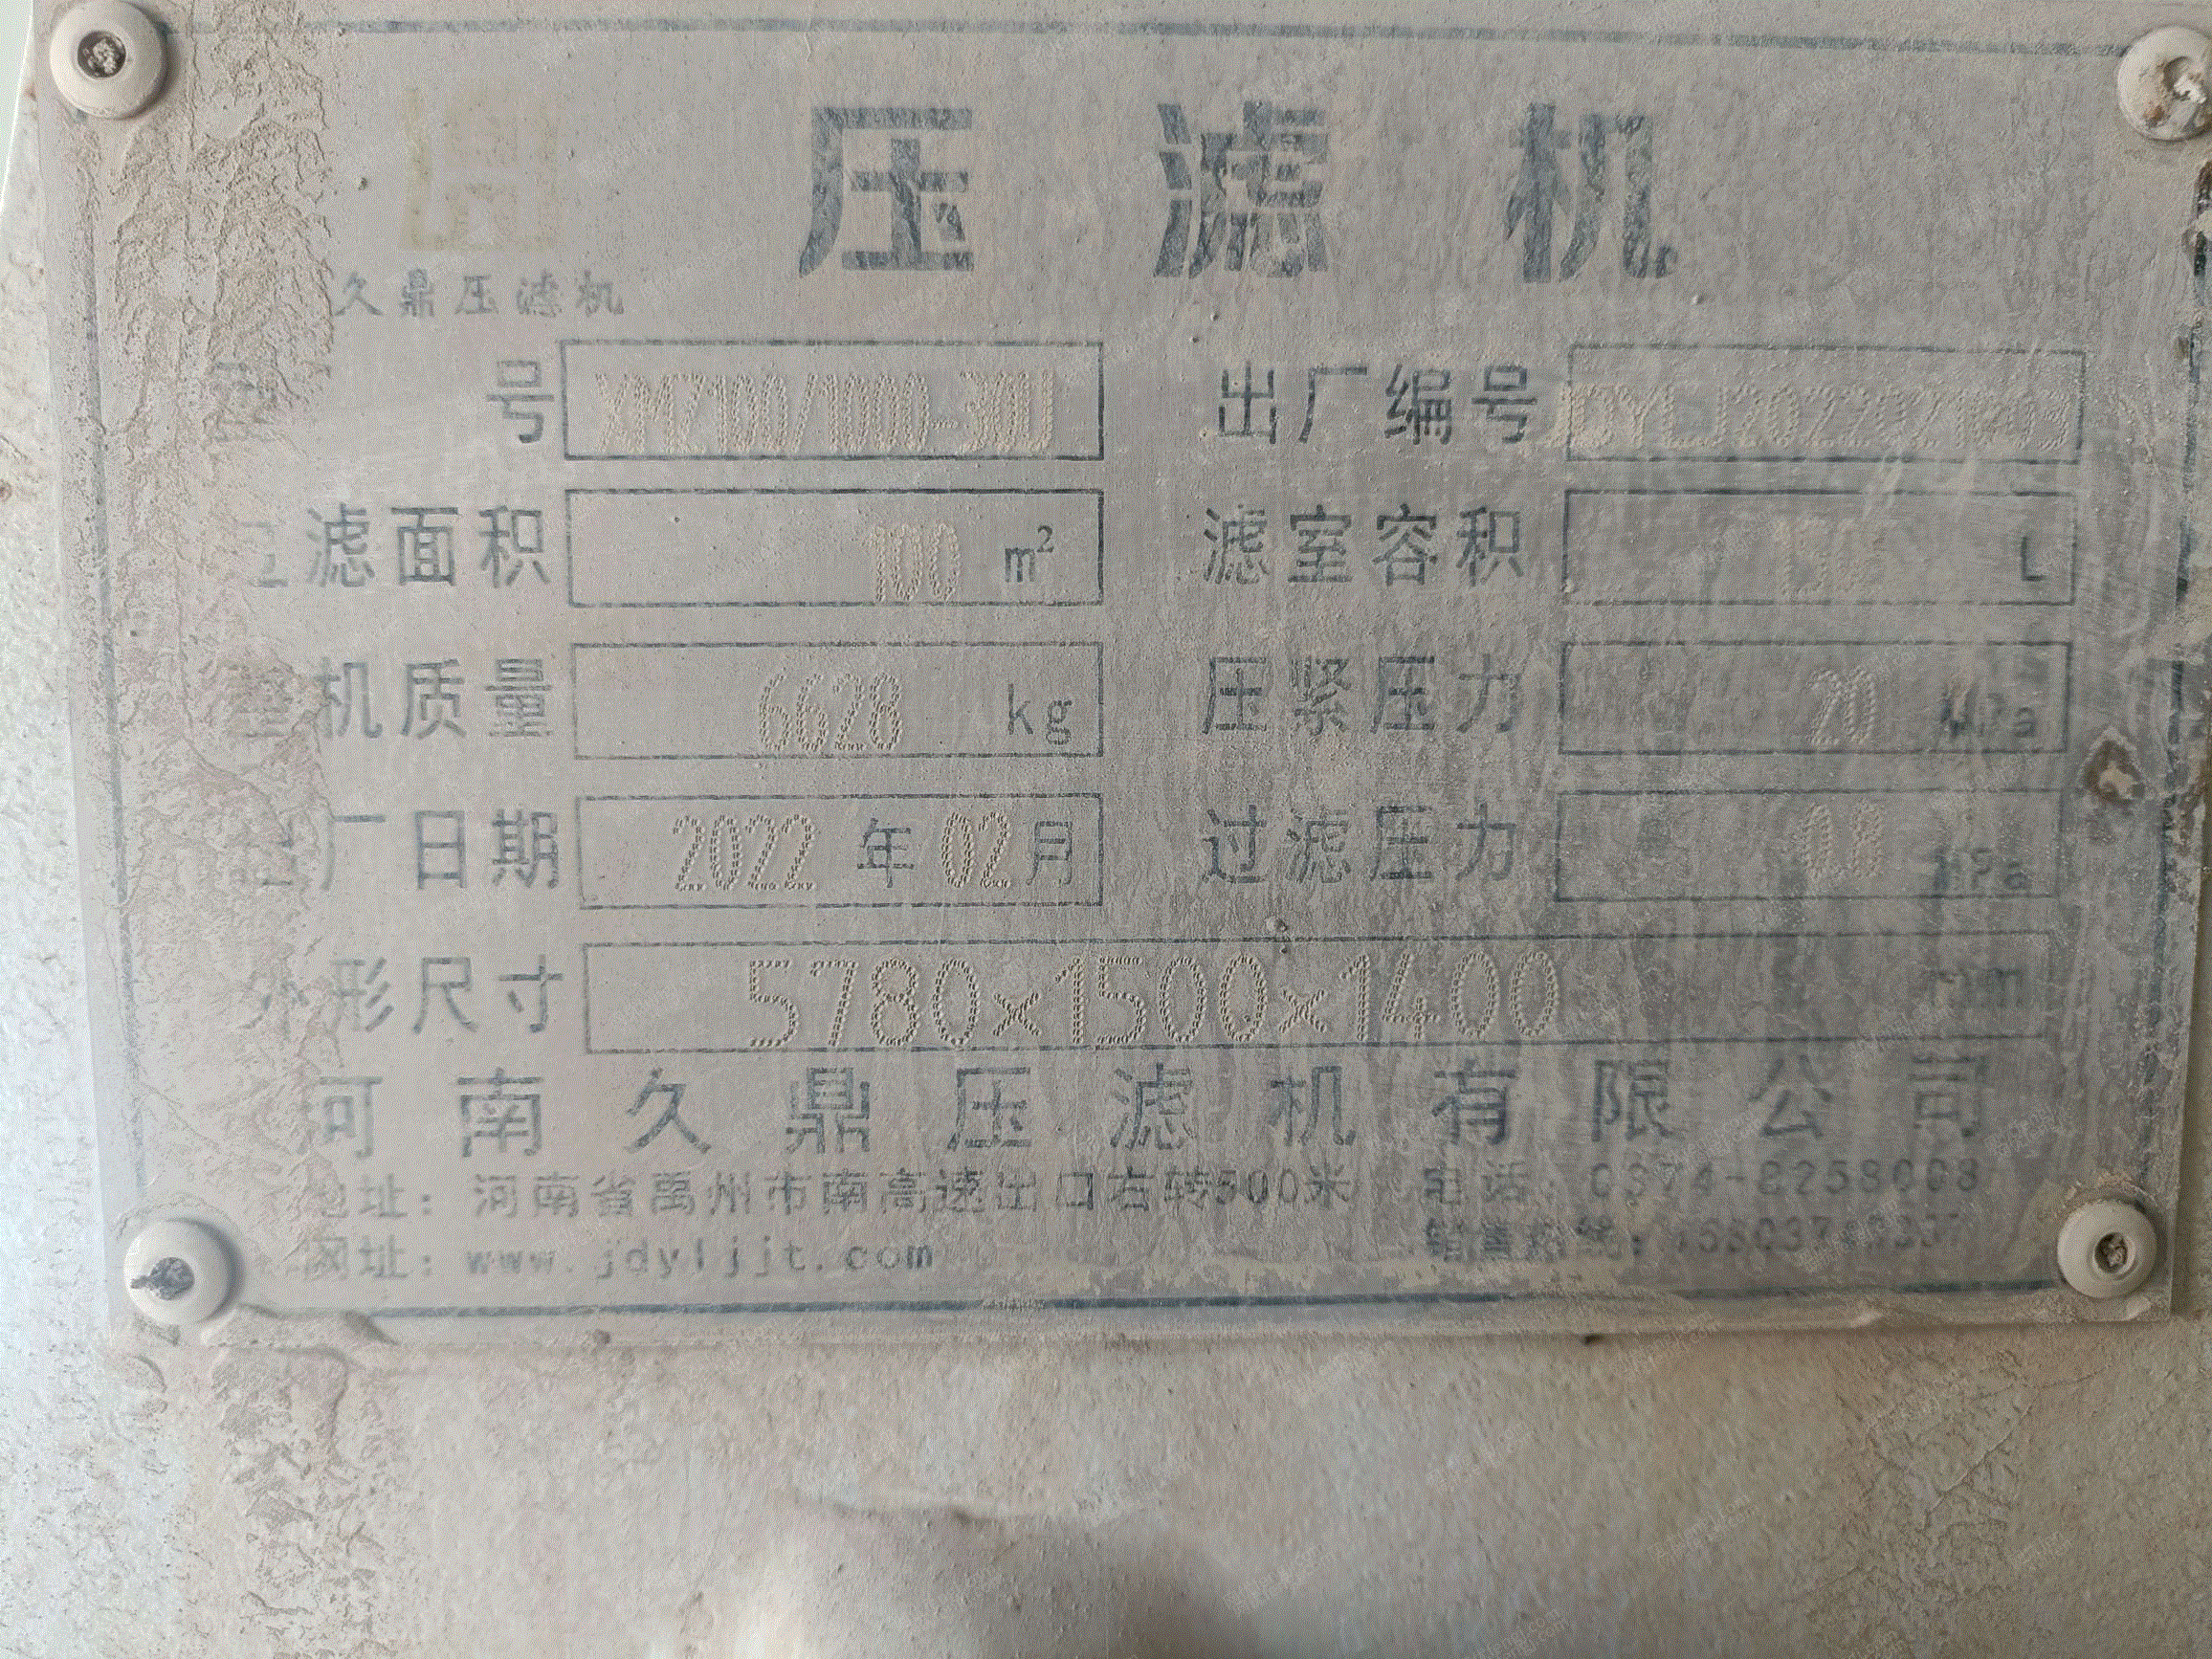 压滤机
久鼎压滤机
号 XMZ100/1000-30U 出厂编号
滤面积 100 m² 滤室容积 L
整机质量 6628 kg 压紧压力 20 MPa
厂日期 2022年02月 过滤压力 0.8 MPa
外形尺寸 5780×1500×1400 mm
河南久鼎压滤机有限公司
地址：河南省禹州市南高速出口右转500米 电话：
网址：www.jdyljjt.com